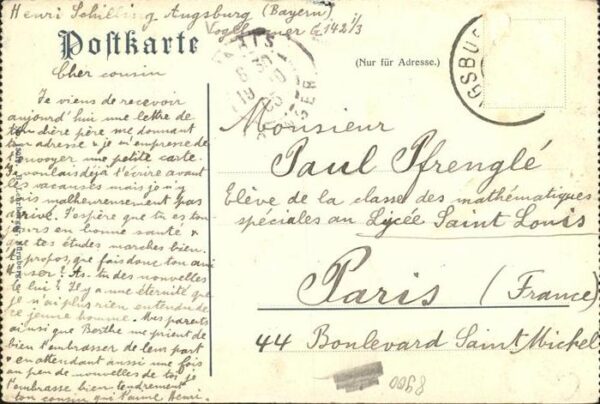 Henri Schilling, Augsburg (Bayern)
Postkarte
(Nur für Adresse.)
PARIS
8 30
19 10
05
ETRANGER
GSBU
Cher cousin
Je viens de recevoir
aujourd'hui une lettre de
ton chère père me donnant
ton adresse & je m'empresse de
t'envoyer une petite carte.
Je voulais déjà t'écrire avant
les vacances mais je n'y
suis malheureusement pas
arrivé. J'espère que tu es tou
jours en bonne santé &
que tes études marchent bien.
A propos, que fais donc ton ami
? As-tu des nouvelles
de lui? Il y a une éternité que
je n'ai plus rien entendu de
ce jeune homme. Mes parents
ainsi que Berthe me prient de
bien t'embrasser de leur part
& en attendant aussi une fois
un peu de nouvelles de toi, je
t'embrasse bien tendrement
ton cousin qui t'aime Henri.
Monsieur
Paul Pfrenglé
Elève de la classe des mathématiques
spéciales au Lycée Saint Louis
Paris (France)
44 Boulevard Saint Michel
8900